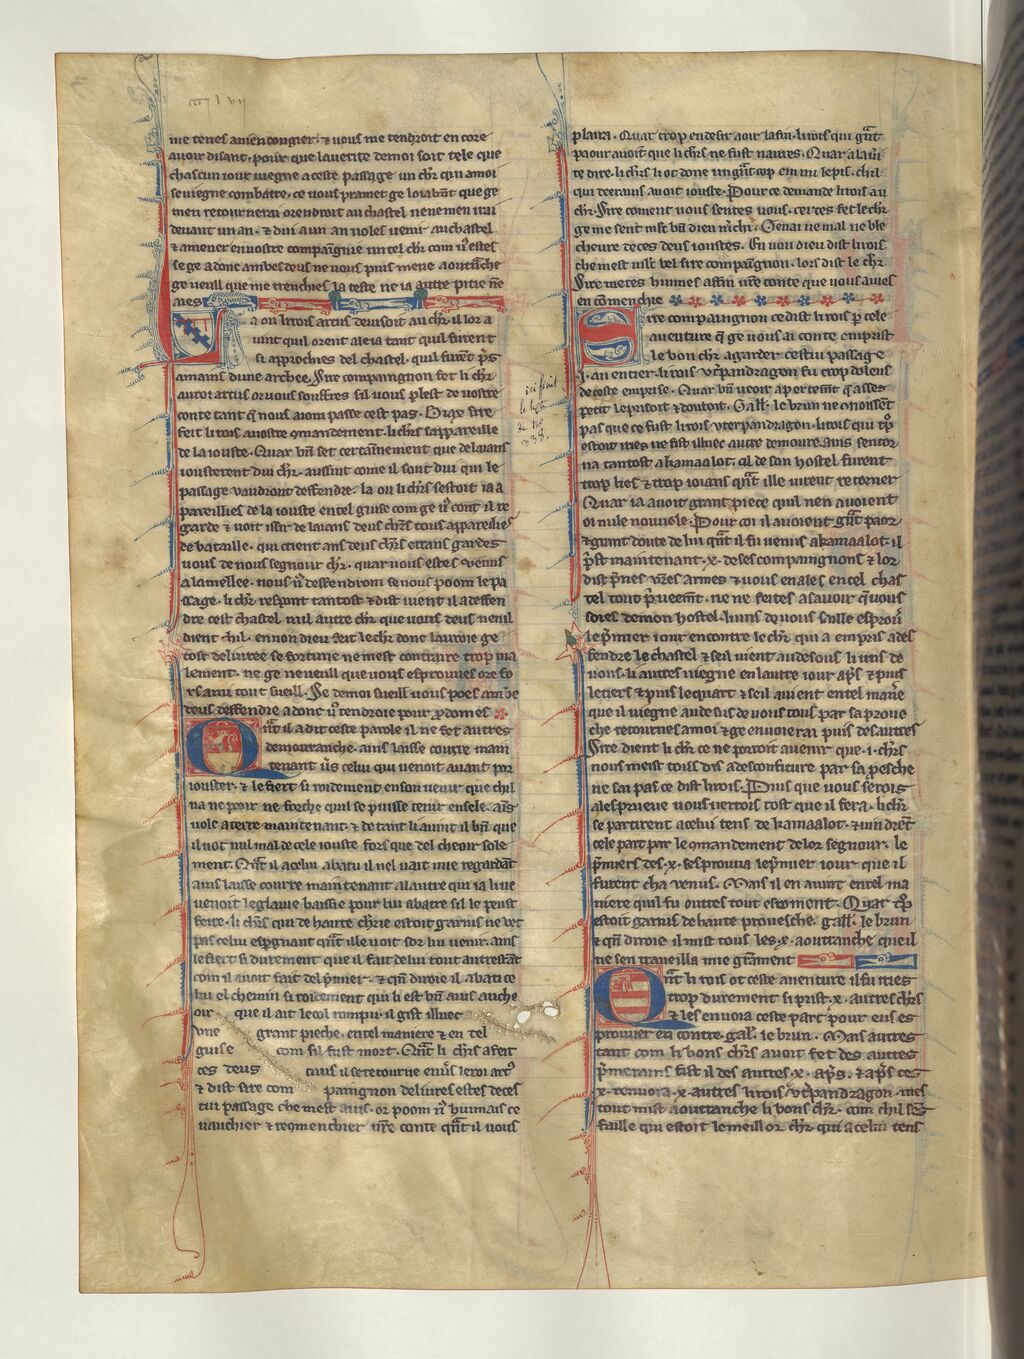 me tenes a mencongier · ⁊ uous me tendroit en core
auoir disant · pour que la uerite de moi soit tele que
chascun iour uiegne a ceste passage un chr̄ qui a moi
se uiegne combatre · ce uous pramet ge loiaūt que ge
men retournerai orendroit au chastel ne nen istrai
deuant un an · ⁊ diu a un an uoles uenir au chastel
⁊ amener en uostre compaignie un tel chr̄ com ū estes
se ge adonc ambes deus ne uous puis mene a outrāche
ge ueill que me trenchies la teste ne ia autre pitie nē
aies
a ou li rois artus deuisoit au chr̄ · il lor a
uint quil orent ale ia tant quil furent
si approchies del chastel · quil furēt p̄s
a mains dune archee · Sire compaignon fet li chr̄
au roi artus or uous souffres sil uous plest de uostre
conte tant q̄ nous aiom passe cest pas · Biax sire
feit li rois a uostre ꝯmandement · li chr̄s sapparaeille
de la iouste · Quar bn̄ set certainnement que de laians
iousterent dui chr̄ · aussint come il sont dui qui le
passage uaudront deffendre · la ou li chr̄s sestoit ia a
pareillies de la iouste en tel guise com ge ū cont il re
garde ⁊ uoit issir de laians deus chr̄s tous appareillies
de bataille · qui crient ans deus chr̄s errans gardes
uous de nous segnour chr̄ · quar uous estes uenus
a la mellee · nous ū deffendrom se nous poom le pa
ssage · li chr̄ respont tantost ⁊ dist uient il a deffen
dre cest chastel nul autre chr̄ que uous deus nenil
dient chil · en non dieu feit le chr̄ donc lauroie ge
tost deliuree se fortune ne mest contraire trop ma
lement · ne ge ne ueill que uous esprouues ore fo
rs a mi tout sueill · Se de moi sueill uous poes ambe
deus deffendre adonc ū tendroie pour ꝓdomes
nt il a dit ceste parole il ne fet autres
demouranche · ains laisse courre main
tenant ūs celui qui uenoit auant por
iouster · ⁊ le fiert si roidement en son uenir que chil
na ne poir ne forche quil se puisse tenir en sele · aīs
uole a terre maintenant · ⁊ de tant li auint il bn̄ que
il not nul mal de cele iouste fors que del cheoir sole
ment · Qn̄t il a celui abatu il nel uait mie regardāt
ains laisse courre maintenant a lautre qui ia li ue
uenoit le glaiue baissie pour lui abatre sil le peust
feire · li chr̄s qui de haute chr̄ie estoit garnis ne uet
pas celui espargnant qn̄t il le uoit sor lui uenir · ains
le fiert si durement que il fait de lui tout autrestāt
com il auoit fait del p̄mier · ⁊ qn̄ diroie il abati ce
lui el chemin si roidement qui li est bn̄ auis auche
oir · que il ait le col rompu · il gist illuec
une grant pieche · en tel maniere ⁊ en tel
guise com sil fust mort · Qn̄t li chr̄s a feit
ces deus caius il se retourne en ūs le roi art9
⁊ dist sire com paingnon deliures estes de ces
tui passage che mest auis · or poom nō huimais ce
uauchier ⁊ reqmenchier ur̄e conte qn̄t il uous
plaira · Quar trop en desir a oir la fin · li rois qui gn̄t
paour auoit que li chr̄s ne fust naures · Quar a la ūi
te dire · li chr̄s li ot done un gn̄t cop en mi le pis · chil
qui deerains auoit iouste · Pour ce demande li rois au
chr̄ · Sire coment uous sentes uous · certes fet le chr̄
ge me sent mlt bn̄ dieu m̄chi · Ge nai ne mal ne ble
cheure de ces deus ioustes · En non dieu dist li rois
che mest mlt bel sire compaignon · lors dist le chr̄
Sire metes huimes affin ur̄e conte que uous auies
en cōmenchie
ire compaignon ce dist li rois p̄ cele
auenture q̄ ge uous ai conte emprist
le bon chr̄ a garder cestui passage
·i· an entier · li rois vtr̄pandragon fu trop dolens
de ceste emprise · Quar bn̄ ueoit apertemt̄ q̄ asses
petit le prisoit ⁊ doutoit · Gall̄ · le brun ne conoissēt
pas que ce fust li rois vterpandragon · li rois qui tp̄
estoit ires ne fist illuec autre demoure · ains sentor
na tantost a kamaalot · cil de son hostel furent
trop lies ⁊ trop ioians qn̄t il le uirent retorner
Quar ia auoit grant piece quil nen auoient
oi nule nouuele · Pour coi il auoient gn̄t paor
⁊ grant doute de lui qn̄t il fu uenus a kamaalot · il
p̄st maintenant · x · de ses compaingnons ⁊ lor
dist p̄nes ur̄es armes ⁊ uous en ales en tel chas
tel tout p̄ueemt̄ · ne ne feites a sauoir q̄ uous
soies de mon hostel · luns de uous saille esprouū
le p̄mier iour encontre le chr̄ qui a empris a def
fendre le chastel ⁊ se il uient au desous li uns de
uous · li autres uiegne en lautre iour ap̄s ⁊ puis
le tiers ⁊ puis le quart ⁊ se il auient en tel manie
que il uiegne au desus de uous tous par sa proue
che retournes a moi ⁊ ge enuoierai puis des autres
Sire dient li chr̄ ce ne porroit auenir que · i · chr̄s
nous meist tous dis a desconfiture par sa proesche
ne sai pas ce dist li rois · Puis que uous serois
a lesprieue uous uerrois tost que il fera · li chr̄
se partirent a celui tens de kamaalot · ⁊ uindrēt
cele part par le ꝯmandement de lor segnour · le
p̄miers des · x · sesprouua le p̄mier iour que il
furent cha uenus · Mais il en auint en tel ma
niere qui fu outres tout esroment · Quar tp̄
estoit garnis de haute prouesche · gall̄ · le brun
⁊ qn̄ diroie il mist tous les · x · a outtranche que il
ne sen traueilla mie grāment
nt li rois ot ceste auenture il fu iries
trop durement si prist · x · autres chr̄s
⁊ les enuoia ceste part pour eus es
prouuer en contre · gall̄ · le brun · Mais autres
tant com li bons chr̄s auoit fet des autres
p̄merains fist il des autres · x · ap̄s · ⁊ ap̄s ces
· x · renuoia · x · autres li rois vtr̄pandragon · mes
tout mist a outtranche li bons chr̄ · com chil sās
faille qui estoit le meillor chr̄ qui a celui tens
ici finit